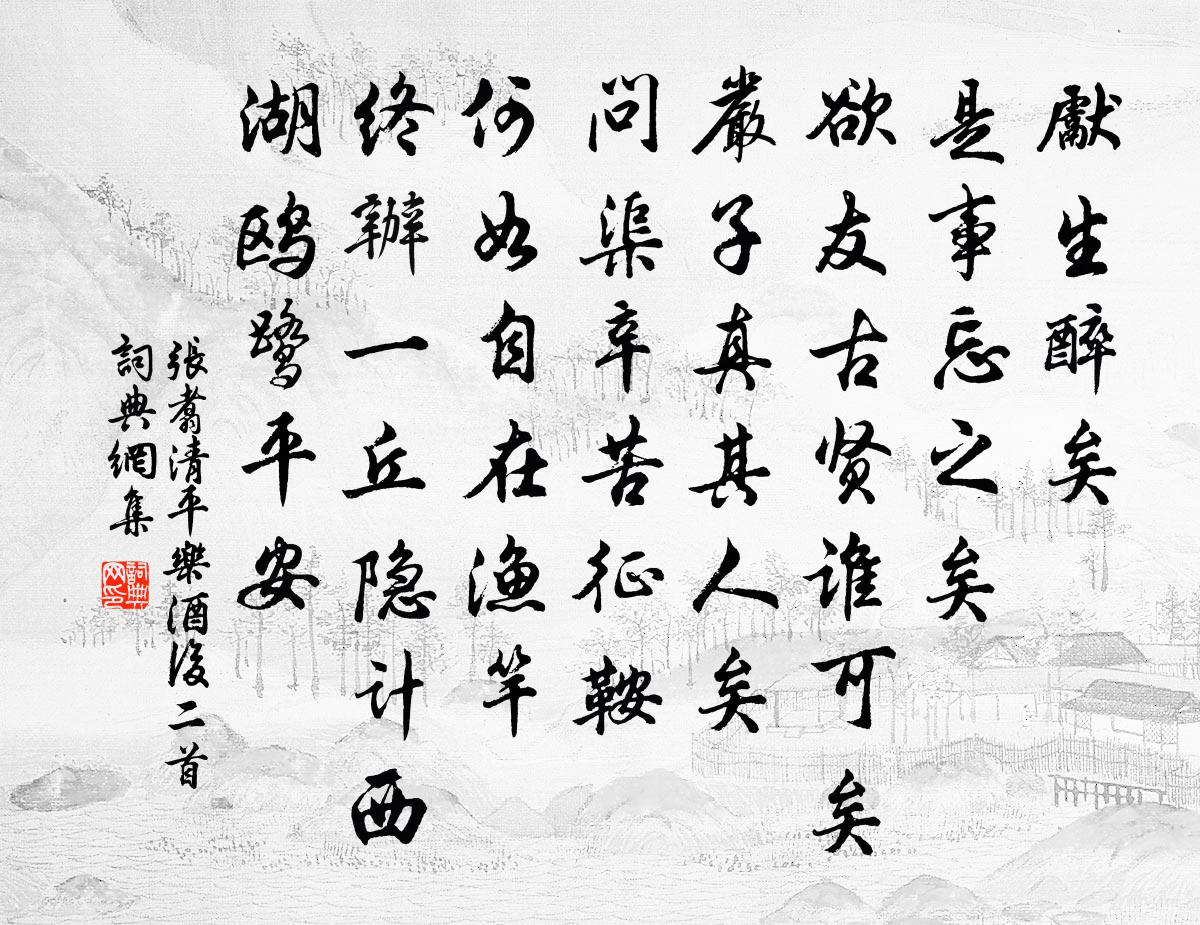 獻生醉矣
是事忘之矣
欲友古贤谁可矣
嚴子真其人矣
问渠辛苦征鞍
何如自在渔竿
终辦一丘隐计西
湖鸥鹭平安
張翥清平樂酒後二首
詞典網集
詞典网印